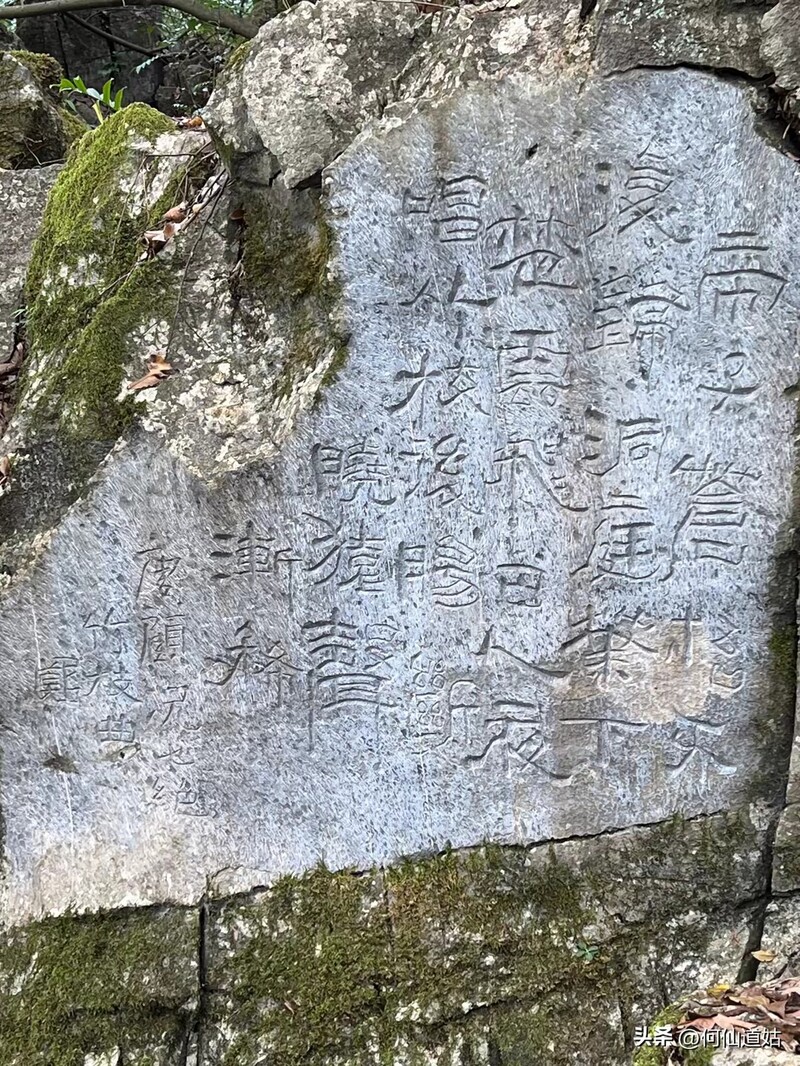 帝子蒼梧不
復歸洞庭葉下
楚雲飛巴人夜
唱竹枝後腸斷
曉猿聲
漸稀
唐顧况七絕
竹枝曲
头条 @何仙道姑